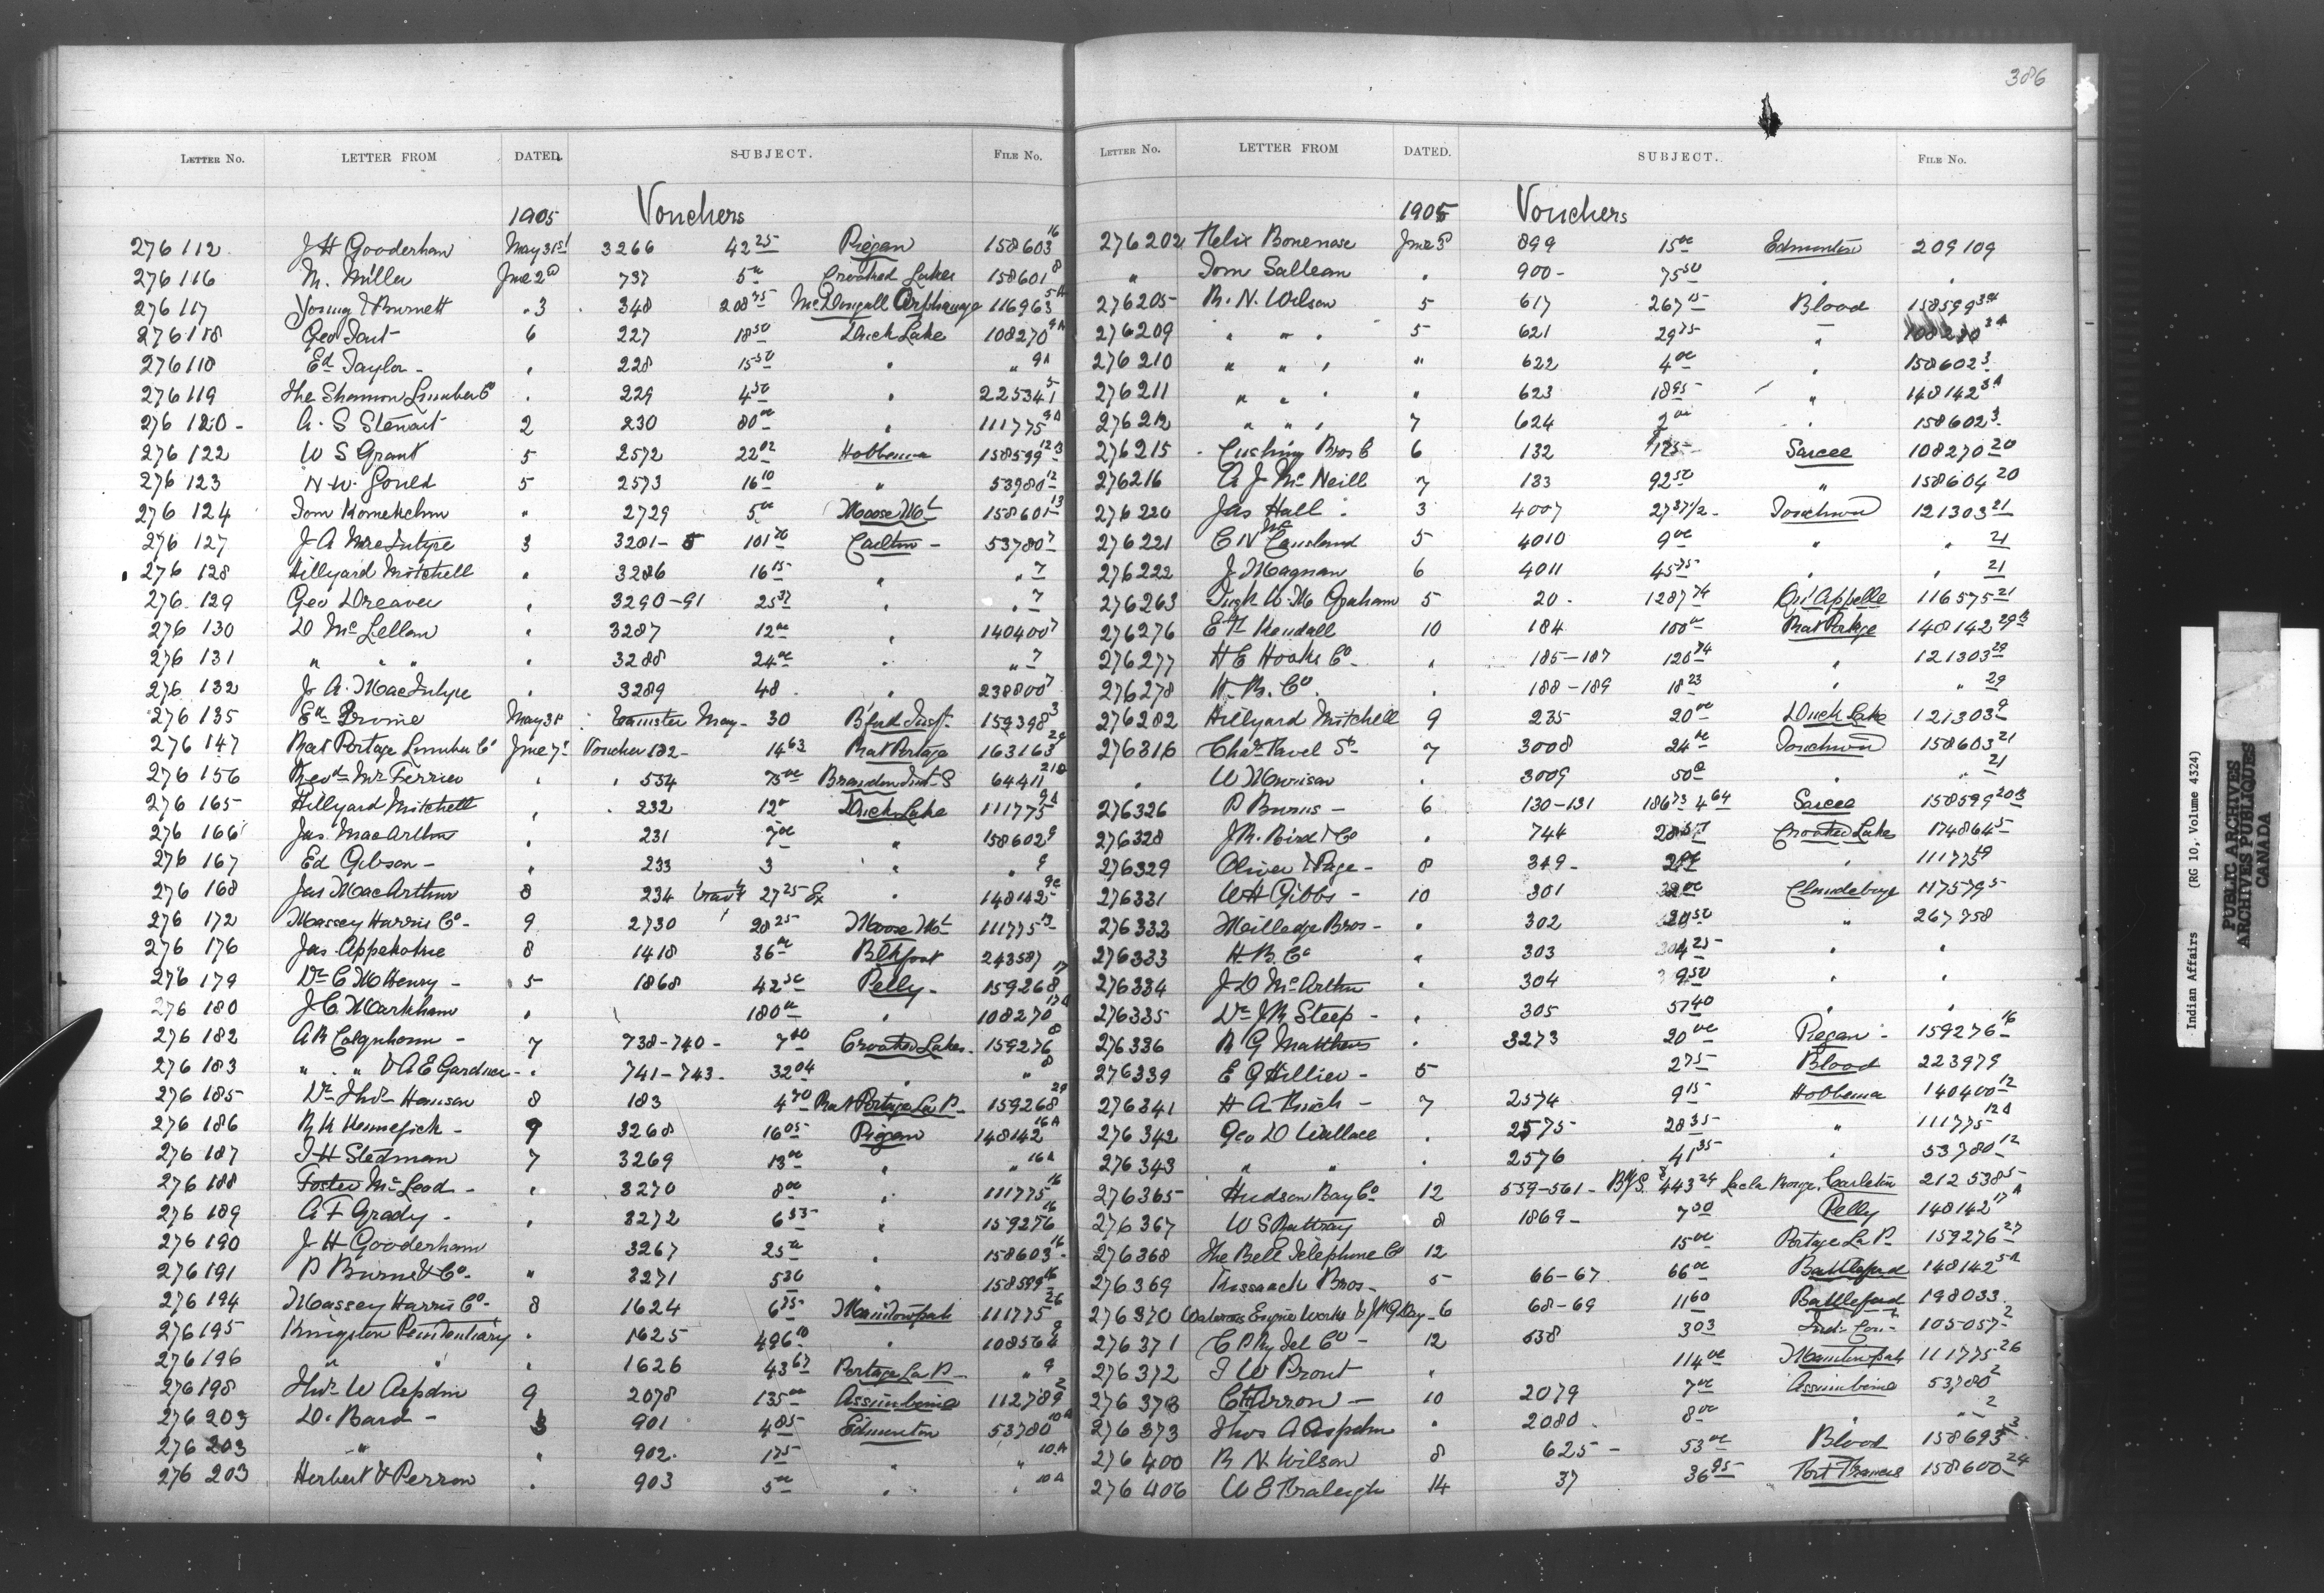 386
LETTER NO. LETTER FROM DATED. SUBJECT. FILE No.
1905 Vouchers
276 112 J H Gooderham May 31st 3266 42 25 Piegan 158603 16
276 116 M. Miller June 2d 737 5 00 Crooked Lakes 158601 8
276 117 Young & Burnett " 3 348 208 75 McDougall Orphanage 116963 5A
276 118 Geo Tait 6 227 18 50 Duck Lake 108270 9A
276 118 Ed Taylor - " 228 15 50 " " 9A
276 119 The Shannon Lumber Co " 229 4 50 " 225341 5
276 120 - A. S Stewart 2 230 80 00 " 111775 9A
276 122 W S Grant 5 2572 22 02 Hobbema 158599 12B
276 123 N W. Gould 5 2573 16 10 " 53980 12
276 124 Tom Kamekchm " 2729 5 00 Moose Mt 158601 13
276 127 J A MacIntyre 3 3281-5 101 70 Carlton - 53780 7
276 128 Hillyard Mitchell " 3286 16 15 " " 7
276 129 Geo Dreaver " 3290-91 25 37 " " 7
276 130 D McLellan " 3287 12 00 " 140400 7
276 131 " " " " 3288 24 00 " " 7
276 132 J. A. MacIntyre " 3289 48 " 238800 7
276 135 Ed Brown May 31 Teamster May - 30 B'ford Inst. 159398 3
276 147 Rat Portage Lumber Co June 7 Voucher 182 - 14 63 Rat Portage 163163 29
276 156 Revd Mr Ferrier " " 534 75 00 Brandon Ind. S 64411 21B
276 165 Hillyard Mitchell " 232 12 " Duck Lake 111775 9A
276 166 Jas. MacArthur " 231 7 00 " 158602 9
276 167 Ed Gibson - " 233 3 " " 9
276 168 Jas MacArthur 8 234 27 25 " 148142 9C
276 172 Massey Harris Co - 9 2730 28 25 Moose Mt 111775 13
276 176 Jas. Appekokie 8 1418 36 00 Blkfoot 243587
276 179 Dr C M Henry - 5 1868 42 50 Pelly - 159268 17
276 180 J C Markham " 180 00 " 108270 17A
276 182 A R Colquhoun - 7 738-740 - 7 40 Crooked Lakes. 159276 8
276 183 " " " & A E Gardner - " 741-743 - 32 04 " " 8
276 185 Dr Thos Hanson 8 183 4 70 Rat Portage La P. 159268 29
276 186 R K Hennesick - 9 3268 16 05 Piegan 148142 16A
276 187 I H Stedman 7 3269 13 00 " " 16A
276 188 Foster McLeod - " 3270 8 00 " 111775 16
276 189 A F Grady - " 3272 6 55 " 159276 16
276 190 J H Gooderham 3267 25 00 " 158603 16
276 191 P Burns & Co - " 3271 5 30 " 158599 16
276 194 Massey Harris Co - 8 1624 6 75 Manitowpah 111775 26
276 195 Kingston Penitentiary " 1625 496 10 " 108564 9
276 196 " " " 1626 43 67 Portage La P - " 9
276 198 Thos W Aspdin 9 2078 135 00 Assiniboine 112789 2
276 203 D. Bard - 3 901 4 85 Edmonton 53780 10A
276 203 " " 902 - 1 75 " " 10A
276 203 Herbert & Perron " 903 5 00 " " 10A
LETTER NO. LETTER FROM DATED. SUBJECT. FILE No.
1905 Vouchers
276202 Felix Bonenose June 3 899 15 00 Edmonton 209109
" Tom Salteau " 900 - 75 50 " "
276205 R. N. Wilson 5 617 267 15 Blood 158599 3A
276209 " " " 5 621 29 75 " 108270 3A
276210 " " " " 622 4 00 " 158602 3
276211 " " " " 623 18 95 " 148142 3A
276212 " " " 7 624 2 00 " 158602 3
276215 Cushing Bros C 6 132 1 25 Sarcee 108270 20
276216 A J McNeill 7 133 92 50 " 158604 20
276220 Jas Hall 3 4007 27 37 1/2 - Touchwd 121303 21
276221 C N McCausland 5 4010 9 00 " " 21
276222 J Magnan 6 4011 45 75 " " 21
276263 Insp W. M Graham 5 20 - 1287 74 Qu'Appelle 116575 21
276276 E H Kendall 10 184 100 00 Rat Portage 148142 29B
276277 H E Hooke Co - " 185-187 126 74 " 121303 29
276278 H. B. Co. " 188-189 18 23 " " 29
276282 Hillyard Mitchell 9 235 20 00 Duck Lake 121303 9
276316 Chas Favel Sr - 7 3008 24 00 Touchwd 158603 21
" W Morrison " 3009 50 00 " " 21
276326 P Burns - 6 130-131 186 73 4 64 Sarcee 158599 20B
276328 J R. Bird & Co " 744 28 57 Crooked Lake 174864 5
276329 Oliver & Page - 8 349 - " 111775 9
276331 W H Gibbs - 10 301 32 00 Clandeboye 117579 5
276332 Milledge Bros - " 302 20 50 " 267758
276333 H B. Co " 303 304 25 " "
276334 J D McArthur " 304 9 50 " "
276335 Dr J R Steep - " 305 57 40 " "
276336 R G Matthews " 3273 20 00 Piegan - 159276 16
276339 E G Hillier - 5 2 75 Blood 223979
276341 H A Finch - 7 2574 9 15 Hobbema 140400 12
276342 Geo D Wallace " 2575 28 35 " 111775 12A
276343 " " " 2576 41 35 " 53780 12
276365 Hudson Bay Co 12 559-561 - 443 24 Lac la Ronge, Carleton 212538 5
276367 W S Rattray 8 1869 - 7 50 Pelly 148142 17A
276368 The Bell Telephone Co 12 15 00 Portage La P. 159276 27
276369 Pressach Bros - 5 66-67 66 00 Battleford 148142 5A
276370 Waterous Engine Works & J H G Day - 6 68-69 11 60 Battleford 198033
276371 C P Ry Tel Co - 12 638 3 03 Ind. Com 105057 2
276372 J W Prout " 114 00 Manitowpah 111775 26
276378 C H Arron - 10 2079 7 00 Assiniboine 53780 2
276373 Thos A Aspdin " 2080 8 00 " " 2
276400 R N Wilson 8 625 - 53 00 Blood 158693 3
276406 W E Fraleigh 14 37 36 95 Fort Frances 158600 24
Indian Affairs (RG 10, Volume 4324)
PUBLIC ARCHIVES
ARCHIVES PUBLIQUES
CANADA